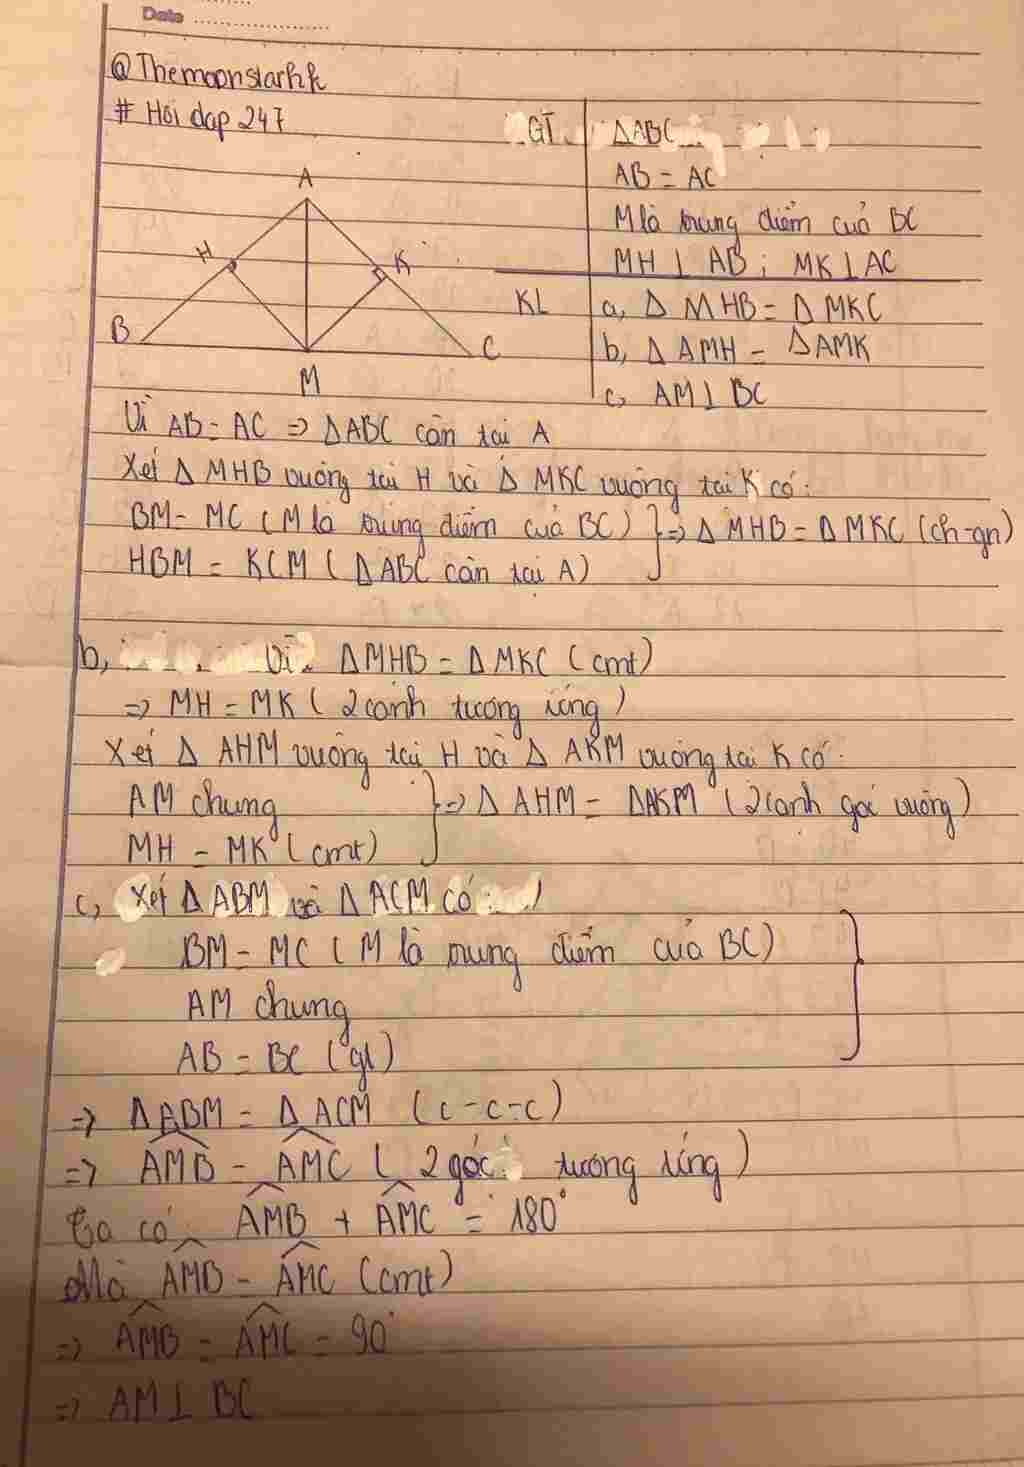 Date
@Themoonstarhk
# Hỏi dap 247
GT ΔABC
AB = AC
M là trung điểm của BC
MH ⊥ AB ; MK ⊥ AC
KL a, Δ MHB = Δ MKC
b, Δ AMH = ΔAMK
c, AM ⊥ BC
A
H K
B C
M
Vì AB = AC => ΔABC cân tại A
Xét Δ MHB vuông tại H và Δ MKC vuông tại K có:
BM = MC ( M là trung điểm của BC ) } => Δ MHB = Δ MKC (ch-gn)
HBM = KCM ( ΔABC cân tại A)
b, Vì ΔMHB = Δ MKC ( cmt)
=> MH = MK ( 2 cạnh tương ứng )
Xét Δ AHM vuông tại H và Δ AKM vuông tại K có:
AM chung } => Δ AHM = ΔAKM (2 cạnh góc vuông)
MH = MK ( cmt)
c, Xét Δ ABM và Δ ACM có:
BM = MC ( M là trung điểm của BC)
AM chung
AB = BC (gt)
=> ΔABM = Δ ACM (c-c-c)
=> \widehat{AMB} = \widehat{AMC} ( 2 góc tương ứng )
Ta có \widehat{AMB} + \widehat{AMC} = 180°
Mà \widehat{AMB} = \widehat{AMC} (cmt)
=> \widehat{AMB} = \widehat{AMC} = 90°
=> AM ⊥ BC